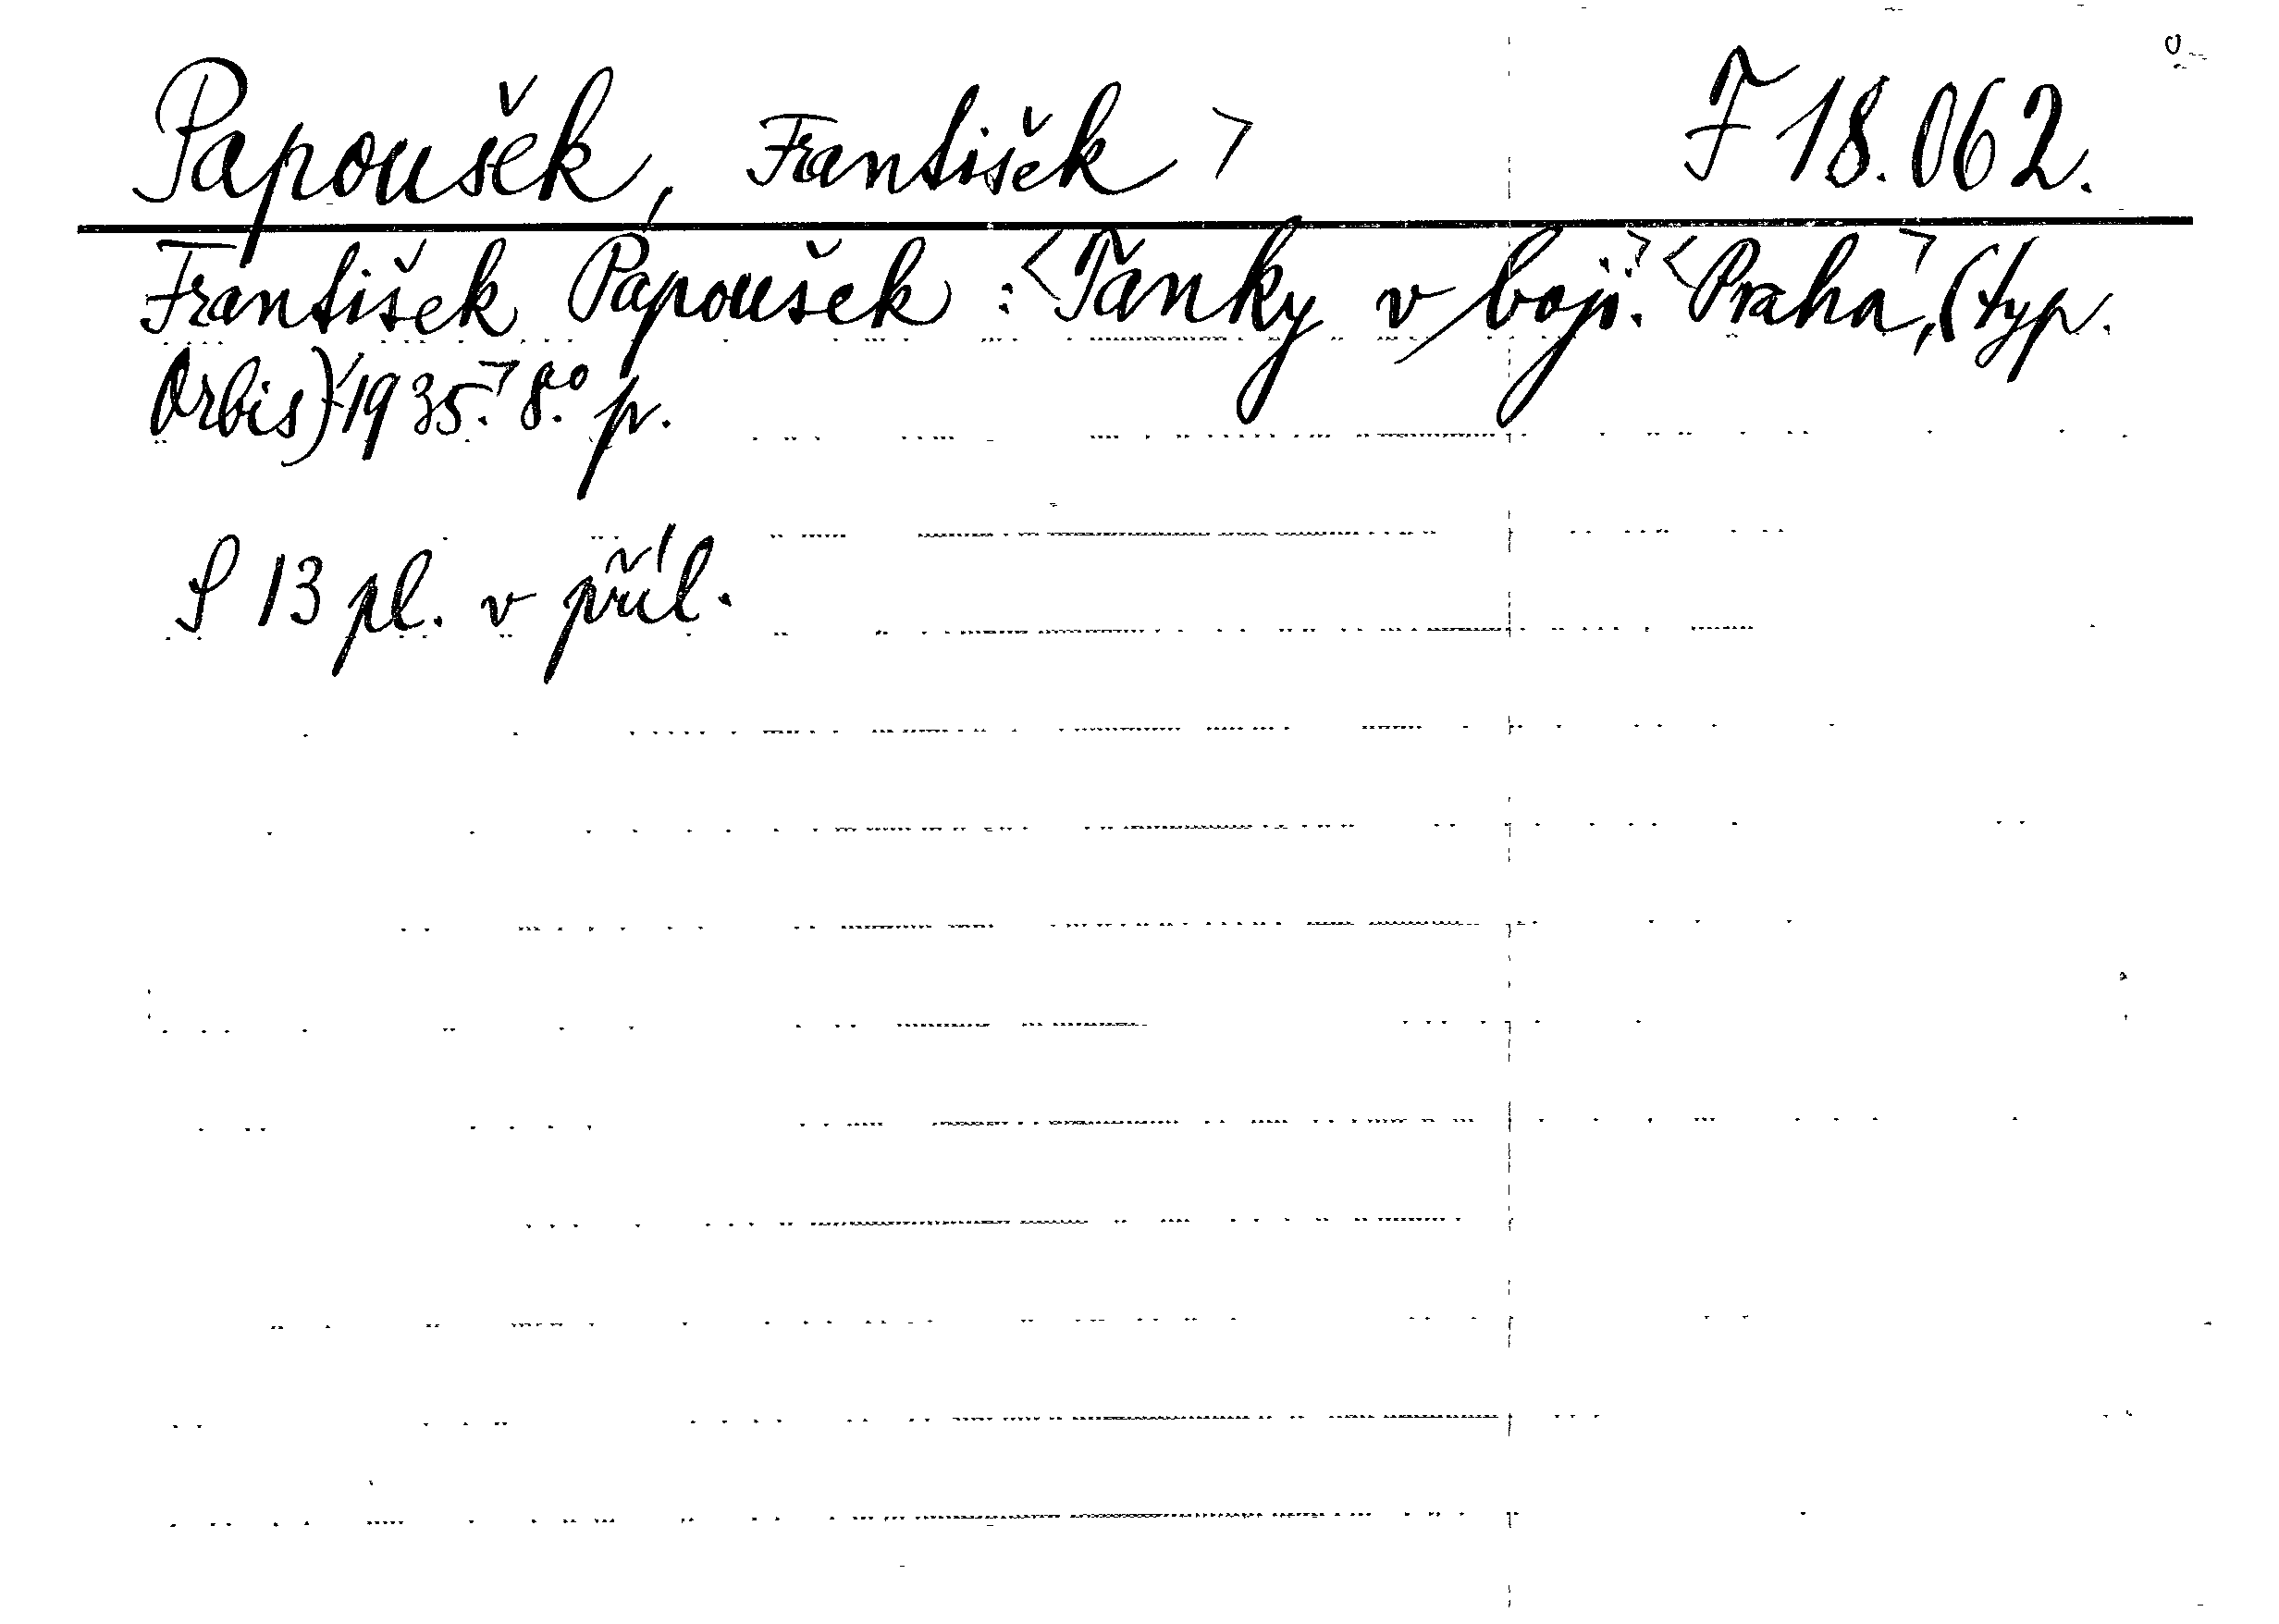 Papoušek, František > F 18.062.
František Papoušek : <Tanky v boji.> <Praha>, (typ.
Orbis) <1935.> 8.° p.
S 13 pl. v příl.